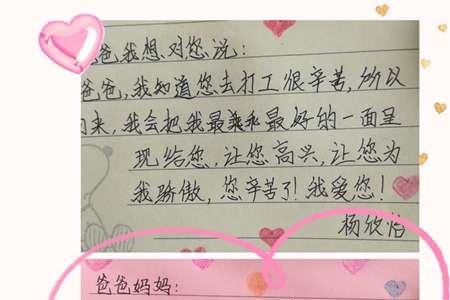 爸爸,我想对您说:
爸爸,我知道您去打工很辛苦,所以
回来,我会把我最乖和最好的一面呈
现给您,让您高兴,让您为
我骄傲,您辛苦了!我爱您!
杨欣怡
爸爸妈妈: